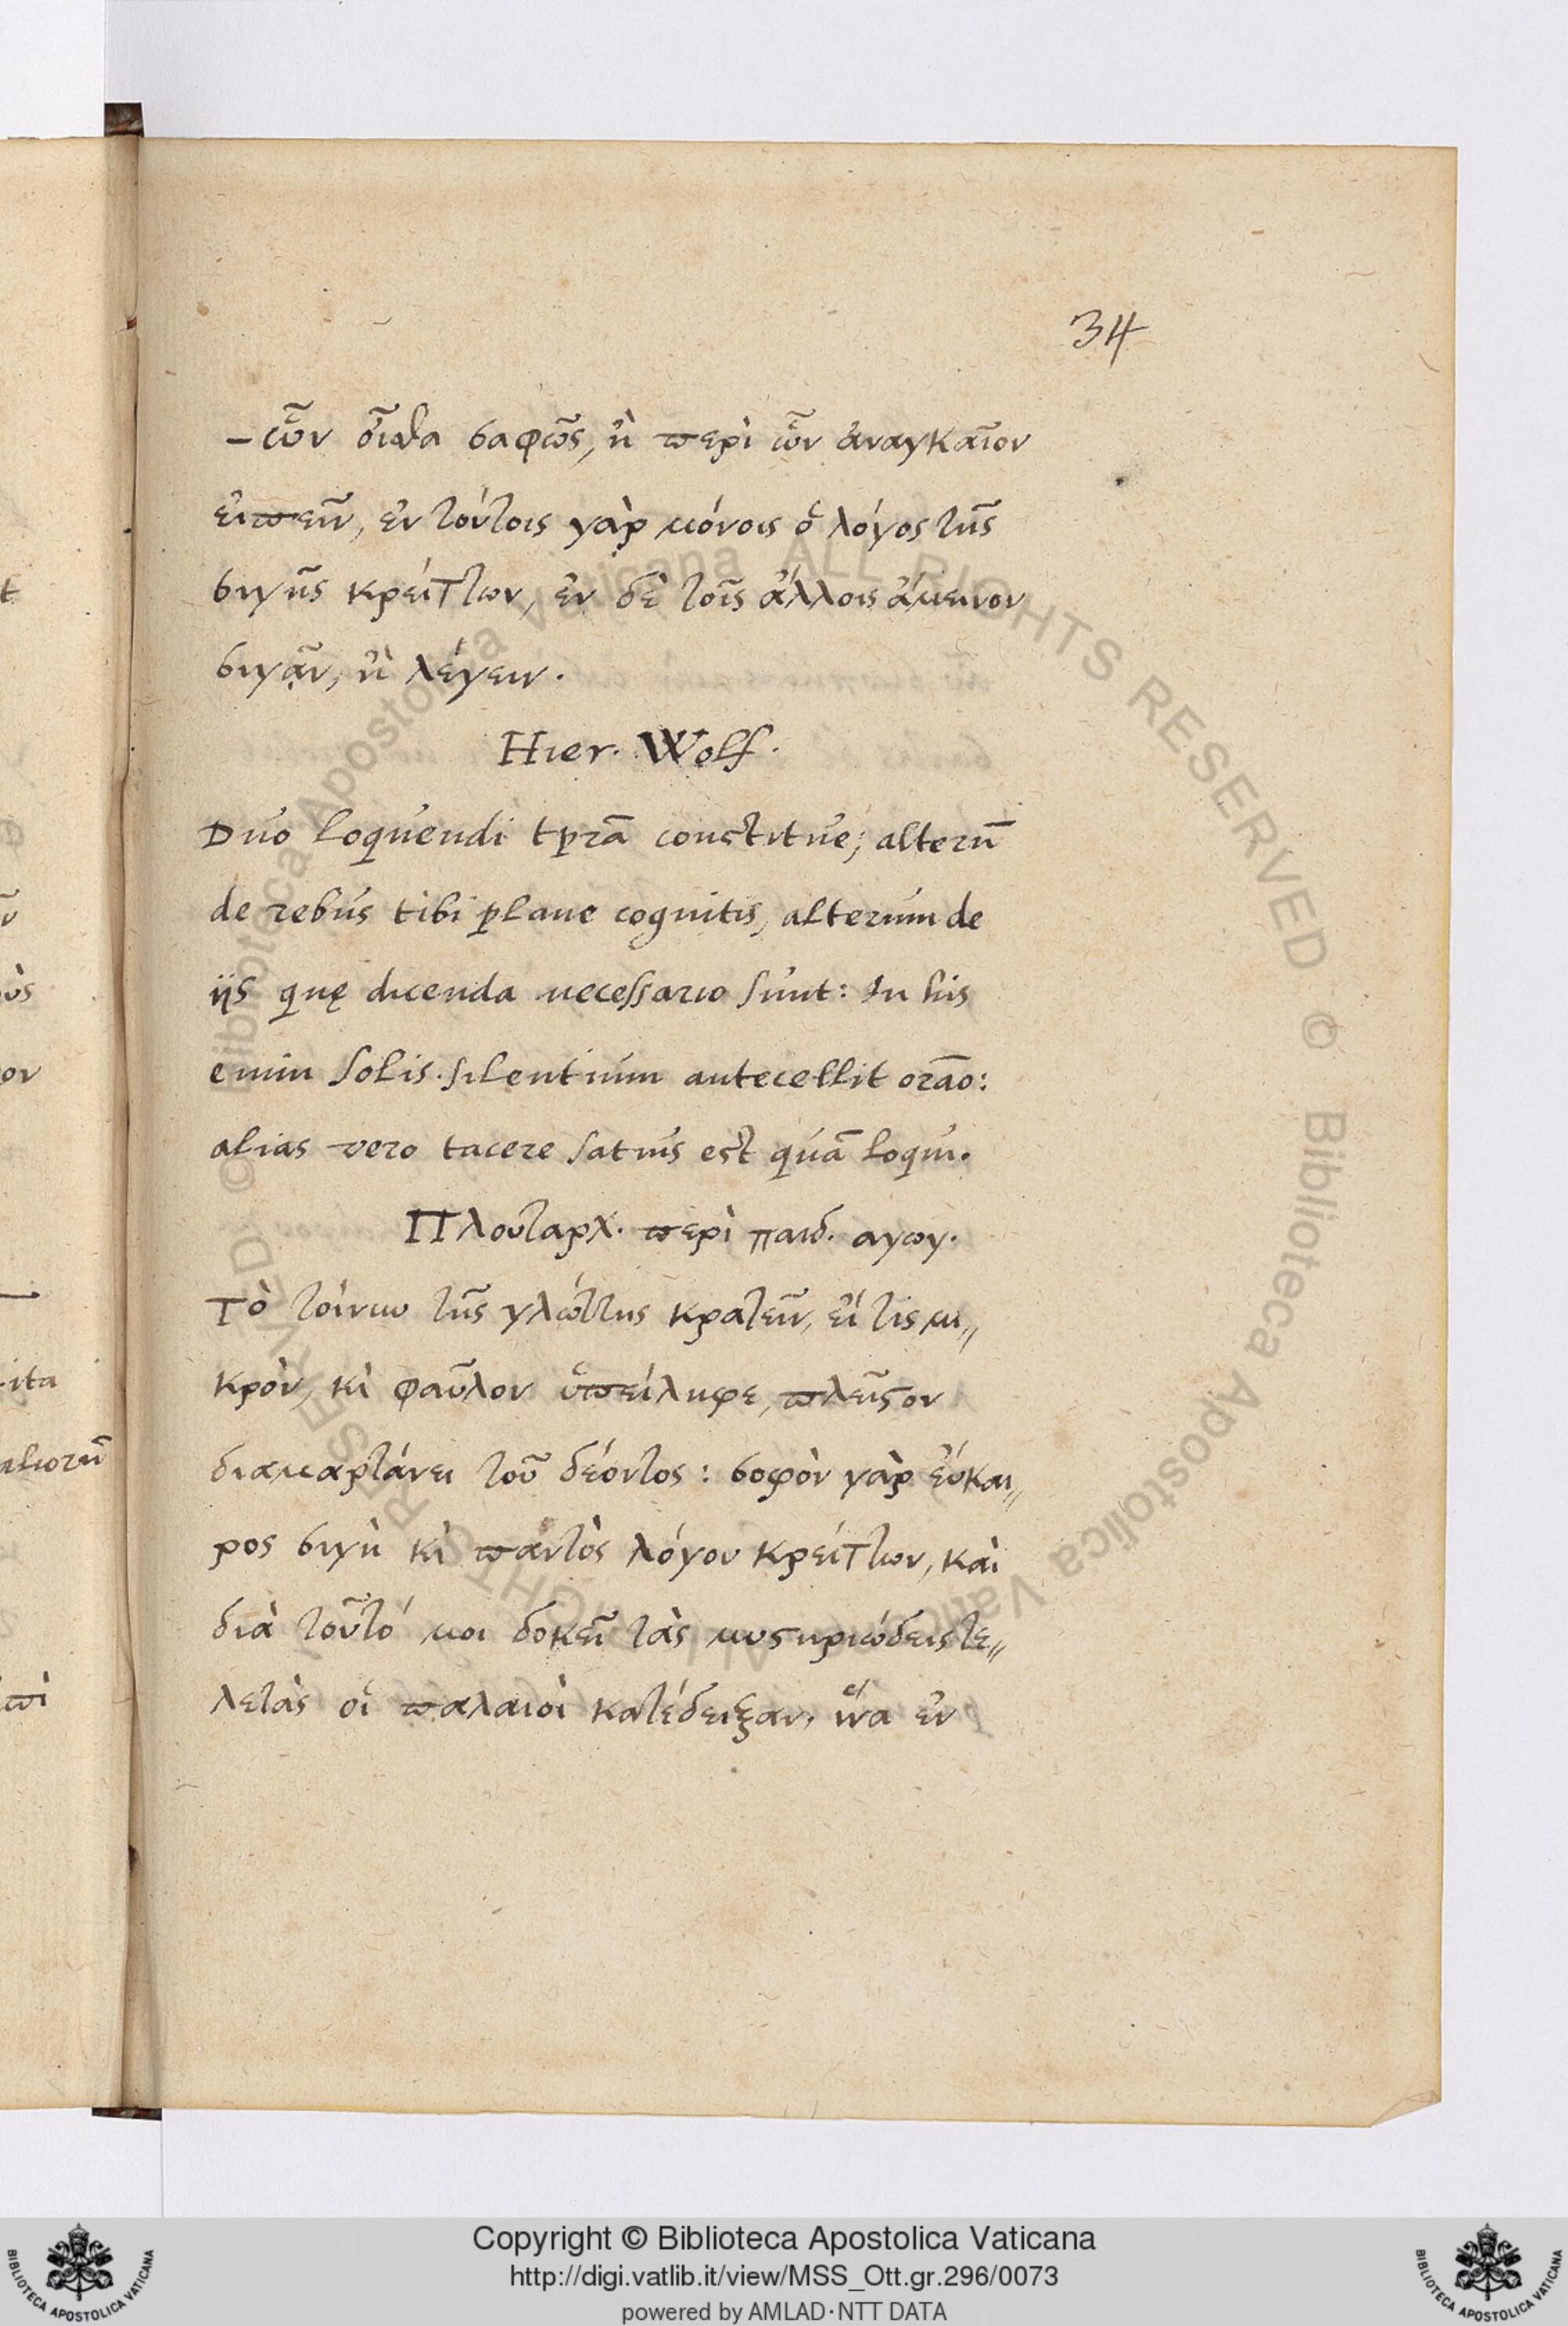 34
-ὧν οἶσθα σαφῶς, ἢ περὶ ὧν ἀναγκαῖον
εἰπεῖν, ἐν τούτοις γὰρ μόνοις ὁ λόγος τῆς
σιγῆς κρείττων, ἐν δὲ τοῖς ἄλλοις ἄμεινον
σιγᾷν, ἢ λέγειν.
Hier. Wolf.
Duo loquendi tp̱rā constitue; alterū
de rebus tibi plane cognitis, alterum de
ijs quę dicenda necessario sunt: In his
enim solis silentium antecellit orāo:
alias vero tacere satius est quā loqui.
Πλουταρχ. περὶ παιδ. αγωγ.
Τὸ τοίνυν τῆς γλώττης κρατεῖν, εἴ τις μι〃
κρὸν, κὶ φαῦλον ὑπείληφε, πλεῖϛον
διαμαρτάνει τοῦ δέοντος: σοφὸν γὰρ εὔκαι〃
ρος σιγὴ κὶ παντὸς λόγου κρείττων, καὶ
διὰ τοῦτό μοι δοκεῖ τὰς μυϛηριώδεις τε〃
λετὰς οἱ παλαιοὶ κατέδειξαν, ἵνα ἐν
t
ὺς
ον
ita
aliorū
πὶ
© Biblioteca Apostolica Vaticana ALL RIGHTS RESERVED © Biblioteca Apostolica Vaticana ALL RIGHTS RESERVED
Copyright © Biblioteca Apostolica Vaticana
http://digi.vatlib.it/view/MSS_Ott.gr.296/0073
powered by AMLAD·NTT DATA
BIBLIOTECA APOSTOLICA VATICANA
BIBLIOTECA APOSTOLICA VATICANA